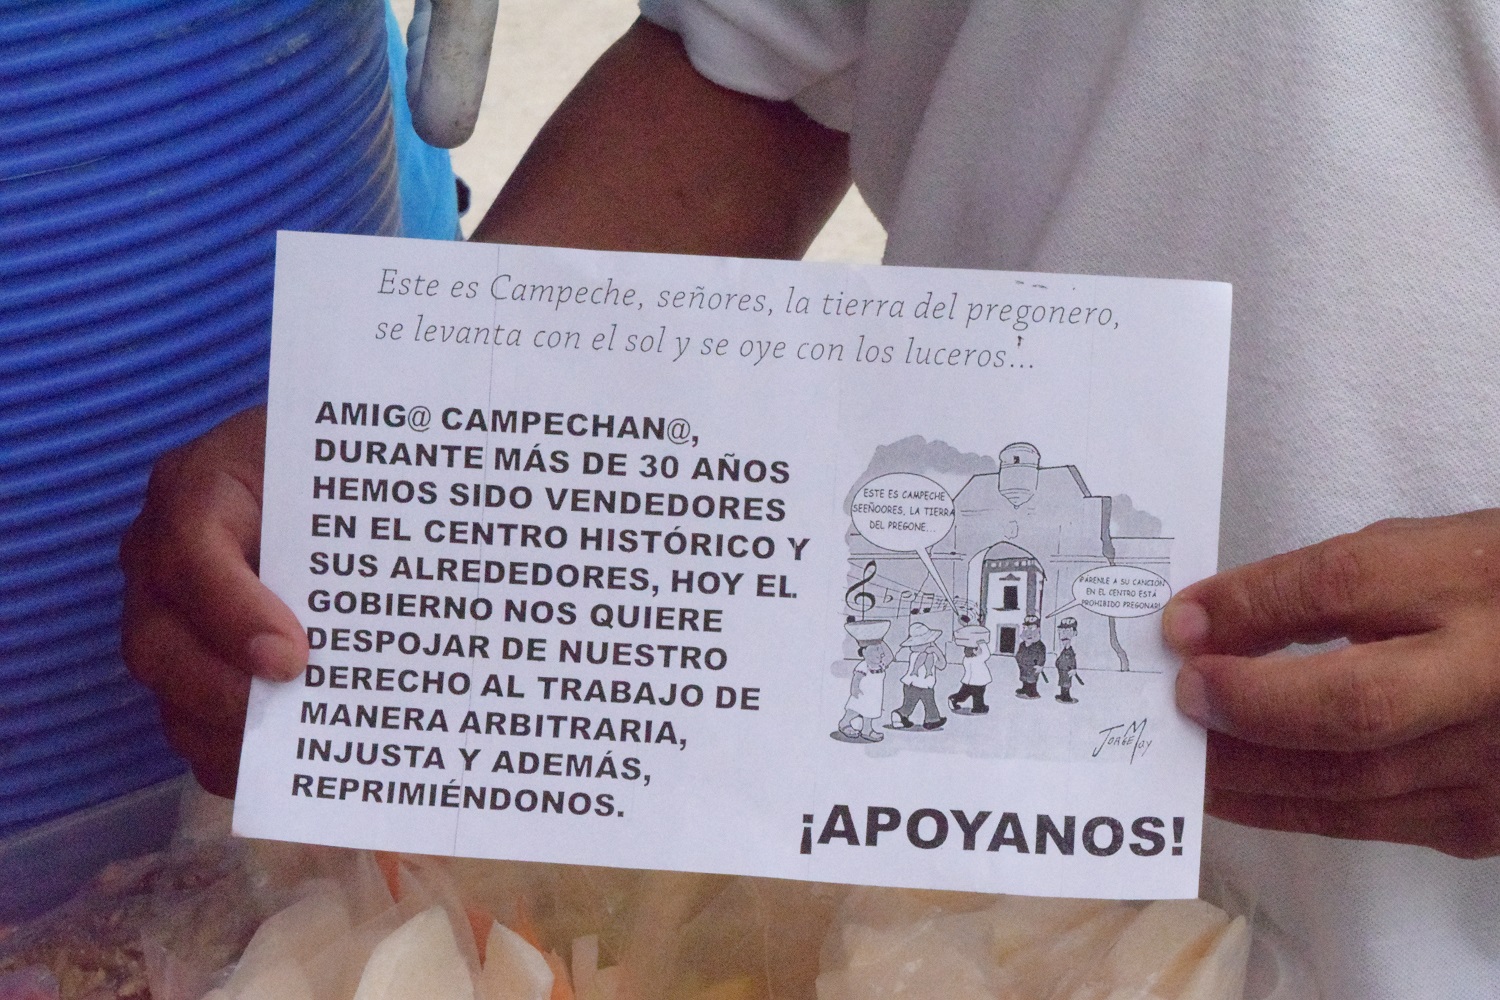 Este es Campeche, señores, la tierra del pregonero,
se levanta con el sol y se oye con los luceros...
AMIG@ CAMPECHAN@,
DURANTE MÁS DE 30 AÑOS
HEMOS SIDO VENDEDORES
EN EL CENTRO HISTÓRICO Y
SUS ALREDEDORES, HOY EL
GOBIERNO NOS QUIERE
DESPOJAR DE NUESTRO
DERECHO AL TRABAJO DE
MANERA ARBITRARIA,
INJUSTA Y ADEMÁS,
REPRIMIÉNDONOS.
ESTE ES CAMPECHE
SEEÑOORES, LA TIERRA
DEL PREGONE...
¡PÁRENLE A SU CANCION
EN EL CENTRO ESTÁ
PROHIBIDO PREGONAR!
JORGE MAY
¡APOYANOS!